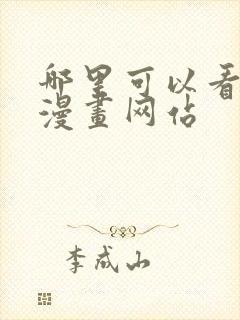 哪里可以看
漫畫网佔
李成山